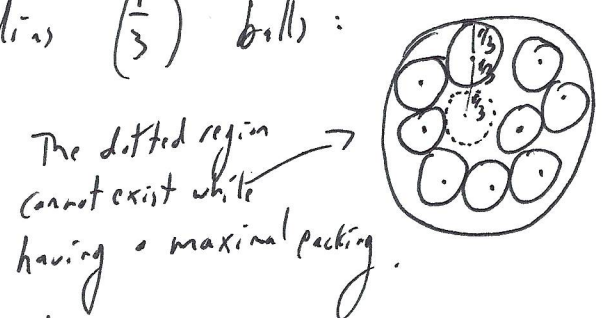 (1/3) balls :
r/3
r/3
r/3
The dotted region
cannot exist while
having a maximal packing.